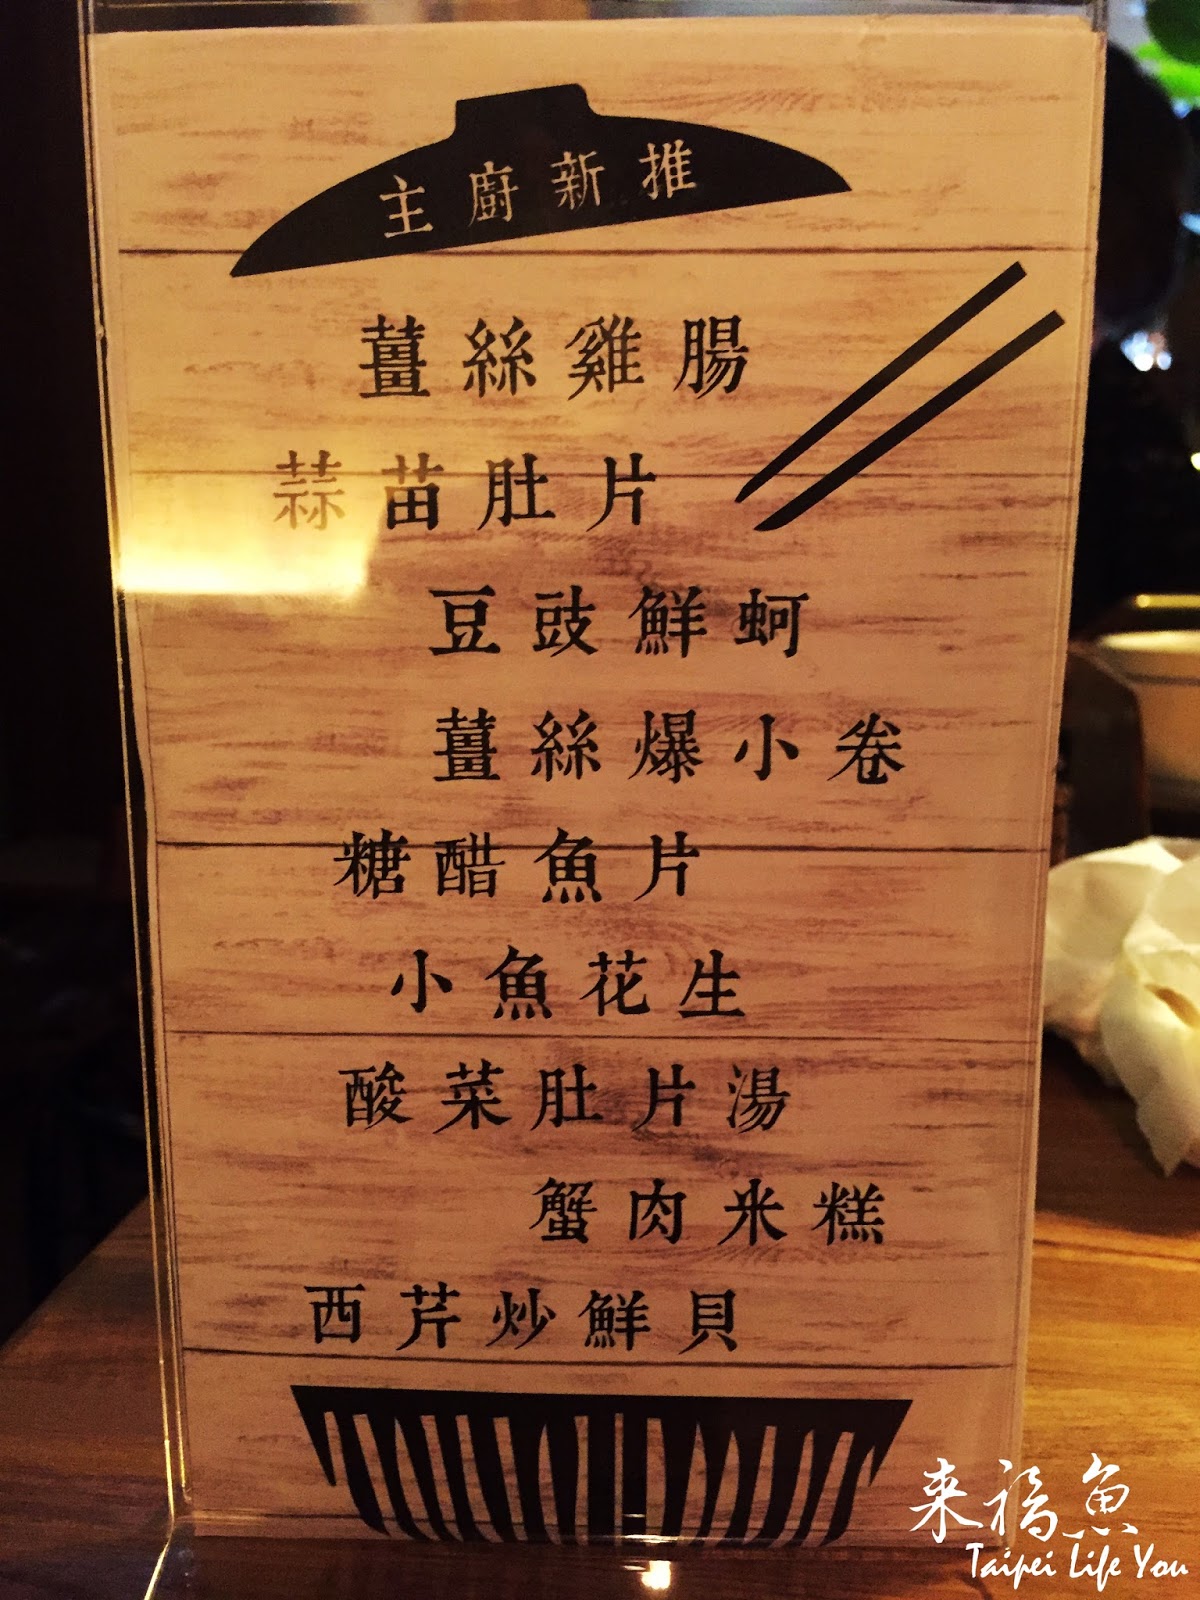 主廚新推
薑絲雞腸
蒜苗肚片
豆豉鮮蚵
薑絲爆小卷
糖醋魚片
小魚花生
酸菜肚片湯
蟹肉米糕
西芹炒鮮貝
来福魚
Taipei Life You